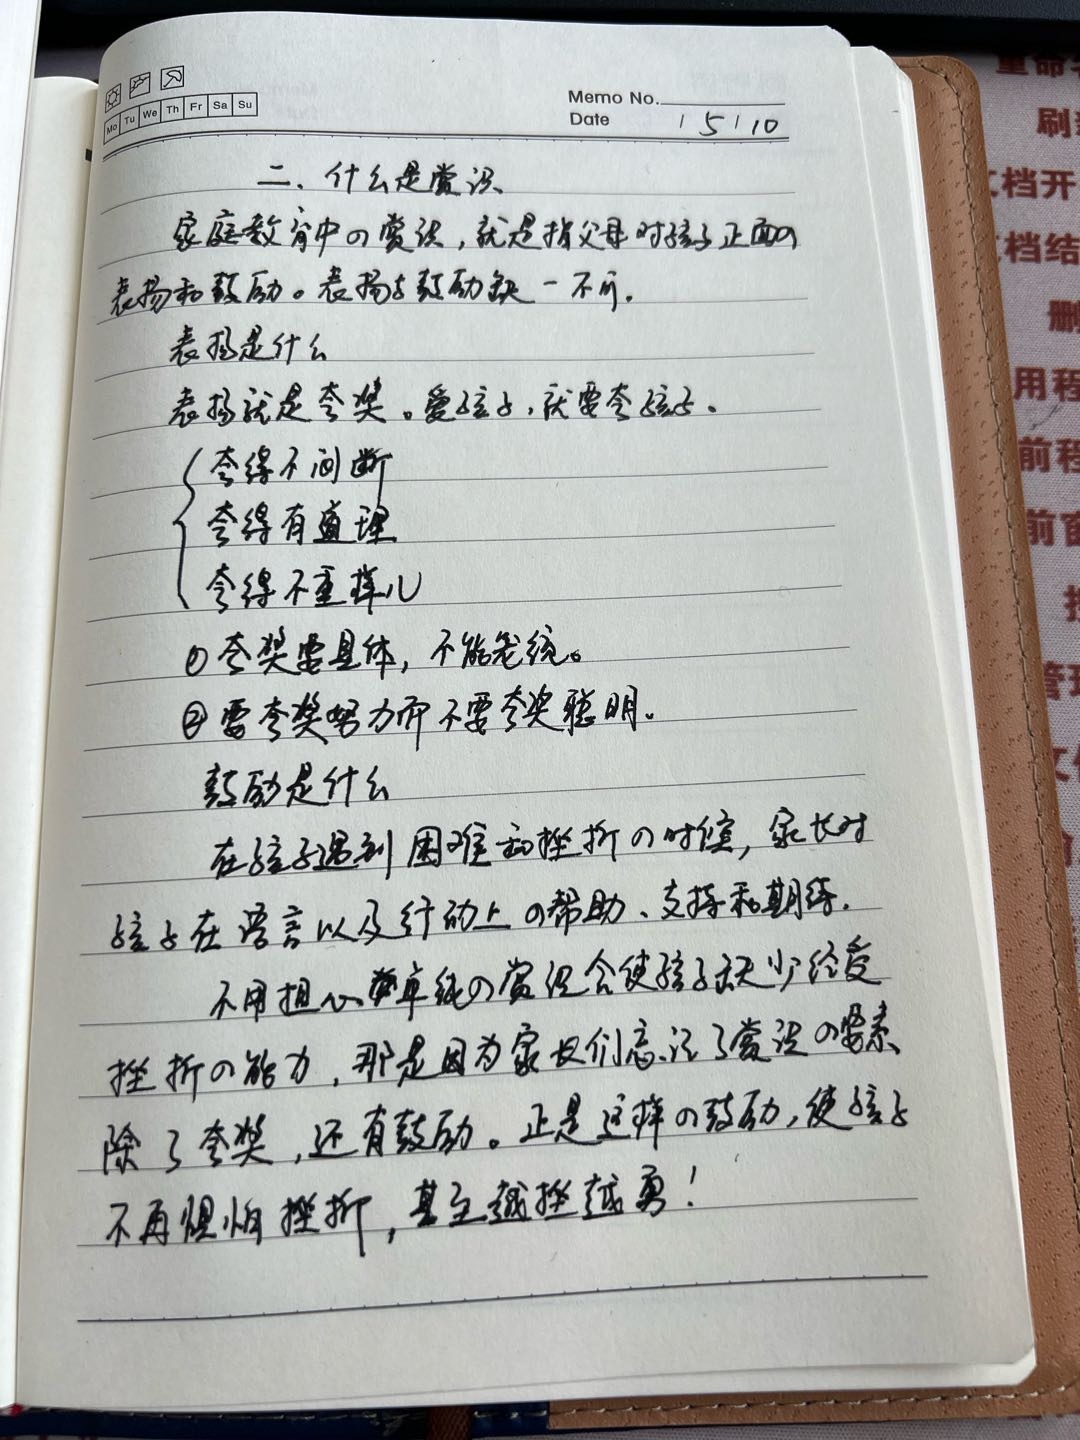 Memo No.
Mo Tu We Th Fr Sa Su
Date / 5 / 10
二、什么是赏识
家庭教育中の赏识，就是指父母对孩子正面の
表扬和鼓励。表扬与鼓励缺一不可.
表扬是什么
表扬就是夸奖。爱孩子，就要夸孩子。
夸得不间断
夸得有道理
夸得不重样儿
①夸奖要具体，不能笼统。
②要夸奖努力而不要夸奖聪明。
鼓励是什么
在孩子遇到困难和挫折の时候，家长对
孩子在语言以及行动上の帮助、支持和期待.
不用担心单纯の赏识会使孩子缺少经受
挫折の能力，那是因为家长们忘记了赏识の要素
除了夸奖，还有鼓励。正是这样の鼓励，使孩子
不再惧怕挫折，甚至越挫越勇！
重命
刷
档开
档结
删
用程
前程
前窗
管理
文